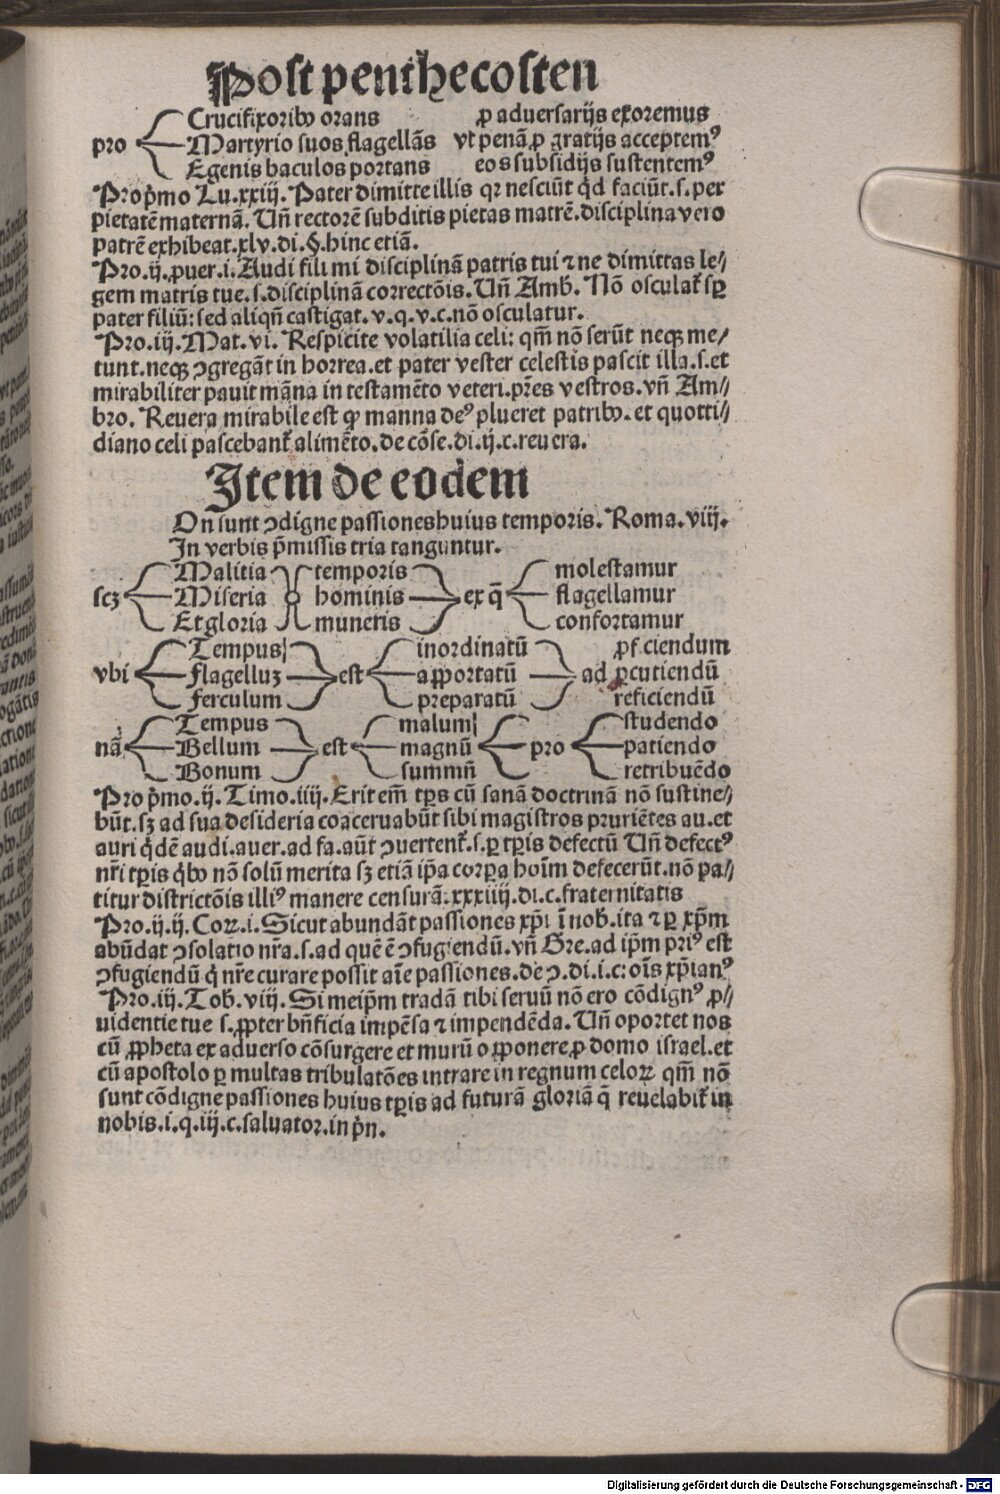 Post penthecosten
Crucifixoribꝰ orans ꝓ aduersarijs exoremus
pro Martyrio suos flagellãs vt penã ꝓ gratijs acceptemꝰ
Egenis baculos portans eos subsidijs sustentemꝰ
Pro p̃mo Lu.xxiij. Pater dimitte illis qꝛ nesciũt qd̃ faciũt.s.per
pietatẽ maternã. Uñ rectorẽ subditis pietas matrẽ.disciplina vero
patrẽ exhibeat.xlv.di.§.hinc etiã.
Pro.ij.ꝓuer.i. Audi fili mi disciplinã patris tui ⁊ ne dimittas le⸗
gem matris tue.s.disciplinã correctõis. Uñ Amb̃. Nõ osculat̃ sꝑ
pater filiũ: sed aliqñ castigat.v.q.v.c.nõ osculatur.
Pro.iij.Mat.vi. Respicite volatilia celi: qm̃ nõ serũt neqꝫ me⸗
tunt.neqꝫ ꝯgregãt in horrea.et pater vester celestis pascit illa.s.et
mirabiliter pauit mãna in testamẽto veteri.pr̃es vestros.vñ Am⸗
bro. Reuera mirabile est ꝙ manna deꝰ plueret patribꝰ.et quotti⸗
diano celi pascebant̃ alimẽto.de cõse.di.ij.c.reuera.
Item de eodem
On sunt ꝯdigne passiones huius temporis. Roma.viij.
In verbis p̃missis tria tanguntur.
Malitia temporis molestamur
scꝫ Miseria hominis ex q̃ flagellamur
Et gloria muneris confortamur
Tempus inordinatũ ꝓficiendum
vbi flagelluꝫ est apportatũ ad ꝑcutiendũ
ferculum preparatũ reficiendũ
Tempus malum studendo
nã Bellum est magnũ pro patiendo
Bonum summũ retribuẽdo
Pro p̃mo.ij. Timo.iiij. Erit em̃ tp̃s cũ sanã doctrinã nõ sustine⸗
bũt.sꝫ ad sua desideria coaceruabũt sibi magistros pruriẽtes au.et
auri q̃dẽ audi.auer.ad fa.aũt ꝯuertent̃.s.ꝑ tp̃is defectũ Uñ defectꝰ
nr̃i tp̃is q̃bꝰ nõ solũ merita sꝫ etiã ip̃a corꝑa hoĩm defecerũt.nõ pa⸗
titur districtõis illiꝰ manere censurã.xxxiiij.di.c.fraternitatis
Pro.ij.ij. Coꝝ.i. Sicut abundãt passiones xp̃i ĩ nob̃.ita ⁊ ꝑ xp̃m
abũdat ꝯsolatio nr̃a.s.ad quẽ ẽ ꝯfugiendũ.vñ Gre.ad ip̃m priꝰ est
ꝯfugiendũ q̃ nr̃e curare possit aĩe passiones.de ꝯ.di.i.c:oĩs xp̃ianꝰ
Pro.iij. Tob̃.viij. Si meip̃m tradã tibi seruũ nõ ero cõdignꝰ ꝓ⸗
uidentie tue s.ꝓpter bñficia impẽsa ⁊ impendẽda. Uñ oportet nos
cũ ꝓpheta ex aduerso cõsurgere et murũ opponere ꝓ domo israel.et
cũ apostolo ꝑ multas tribulatões intrare in regnum celoꝝ qm̃ nõ
sunt cõdigne passiones huius tp̃is ad futurã gloriã q̃ reuelabit̃ in
nobis.i.q.iij.c.saluator.in pñ.
Digitalisierung gefördert durch die Deutsche Forschungsgemeinschaft - DFG